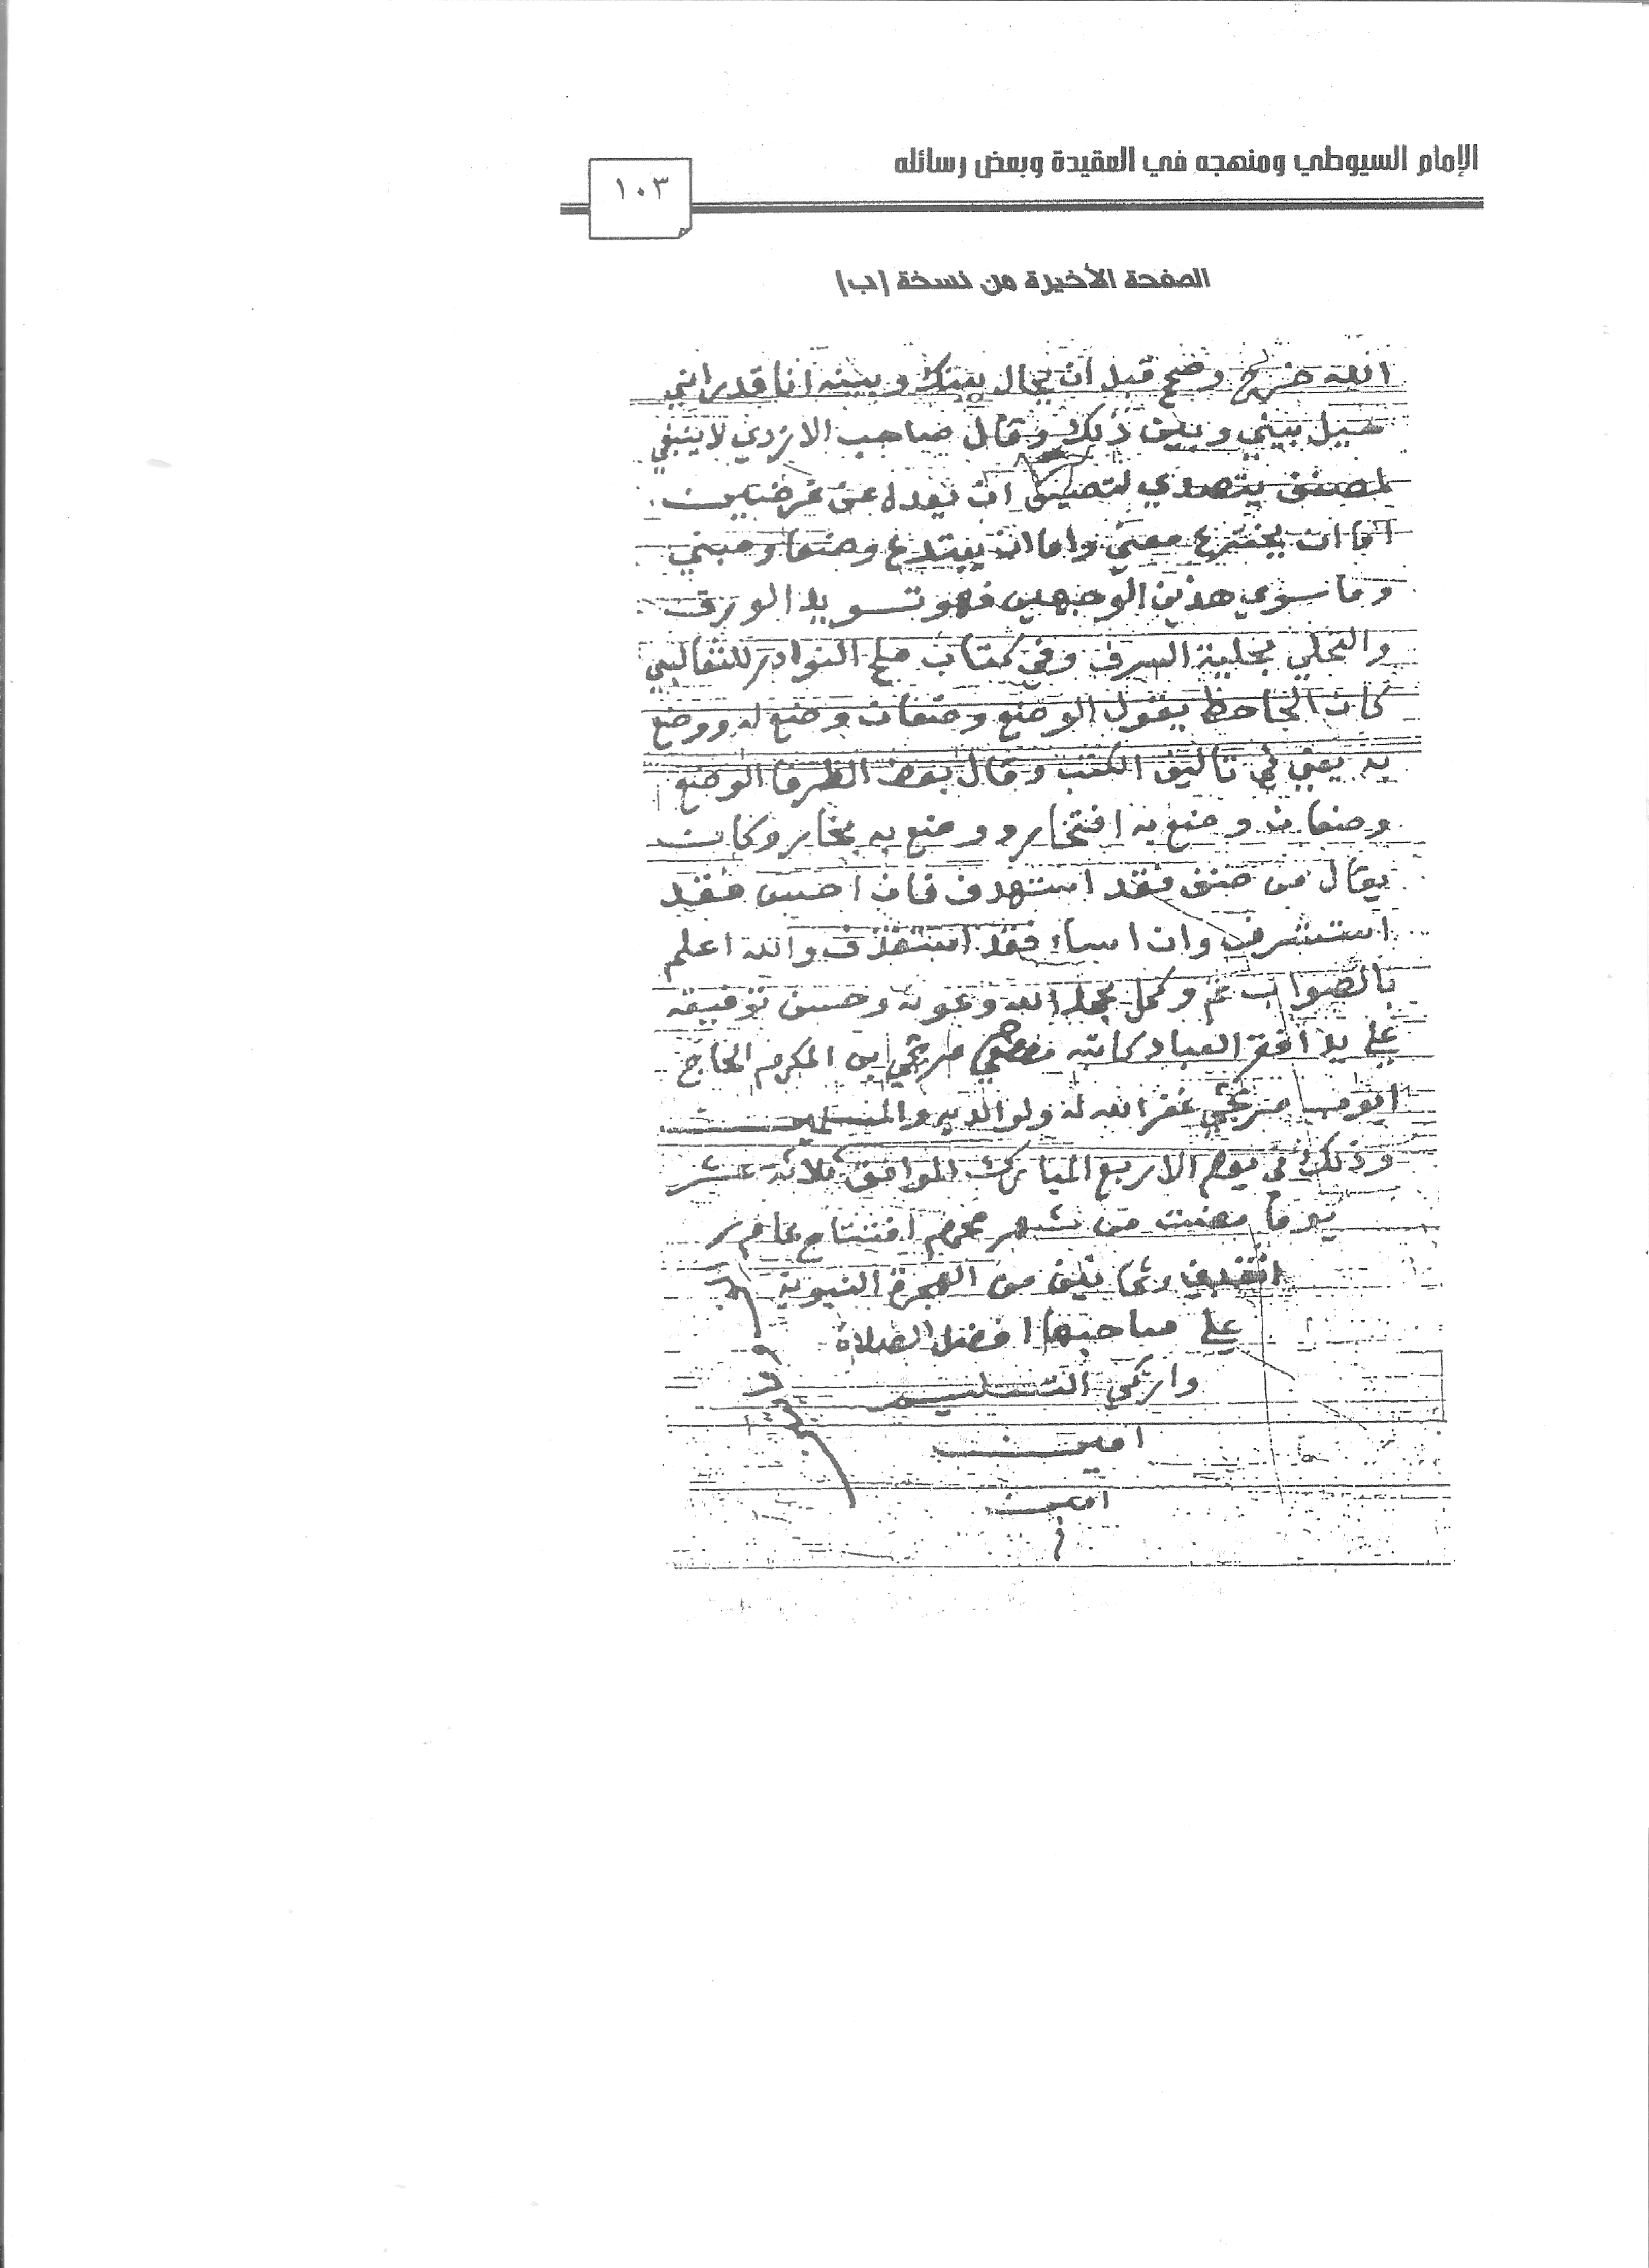 الإمام السيوطي ومنهجه في العقيدة وبعض رسائله
١٠٣
الصفحة الأخيرة من نسخة (ب)
الله خز وضح قبل ان يحال بينك وبينه انا قد راني
حيل بيني وبين ذلك وقال صاحب الازدي لا ينبغي
لمصنف يتصدي لتصنيف ان يعدل عن غرضين
اما ان يخترع معني واما ان يبتدع وضعا ومبني
وما سوي هذين الوجهين فهو تسويد الورق
والتحلي بحلية السرف وفي كتاب ملح النوادر للثعالبي
كان الجاحظ يقول الوضع وضعان وضع له ووضع
به يعني في تاليف الكتب وقال بعض الظرفا الوضع
وضعان وضع به افتخار ووضع به بخار وكان
يقال من صنف فقد استهدف فان احسن فقد
استشرف وان اساء فقد استقذف والله اعلم
بالصواب تم وكمل بحمد الله وعونه وحسن توفيقه
علي يد افقر العباد كاتبه مصطفي مرتجي ابن المكرم الحاج
ايوب مرتجي غفر الله له ولوالديه والمسلمين
وذلك في يوم الاربع المبارك الموافق ثلاثة عشر
يوما مضت من شهر محرم افتتاح عام
وثمانين من الهجرة النبوية
علي صاحبها افضل الصلاة
وازكي التسليم
امين
امين